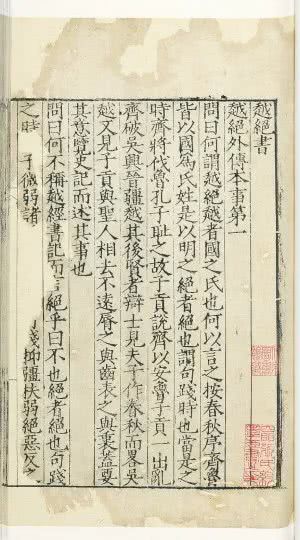 越絕書
越絕外傳本事第一
問曰何謂越絕越者國之氏也何以言之按春秋序齊魯
皆以國爲氏姓是以明之絕者絕也謂句踐時也當是之
時齊將伐魯孔子恥之故子貢說齊以安魯子貢一出亂
齊破吳興晉疆越其後賢者辯士見夫子作春秋而畧吳
越又見子貢與聖人相去不遠脣之與齒表之與裏蓋要
其意覽史記而述其事也
問曰何不稱越經書記而言絕乎曰不也絕者絕也句踐
之時 子微弱諸 踐抑彊扶弱絕惡反之